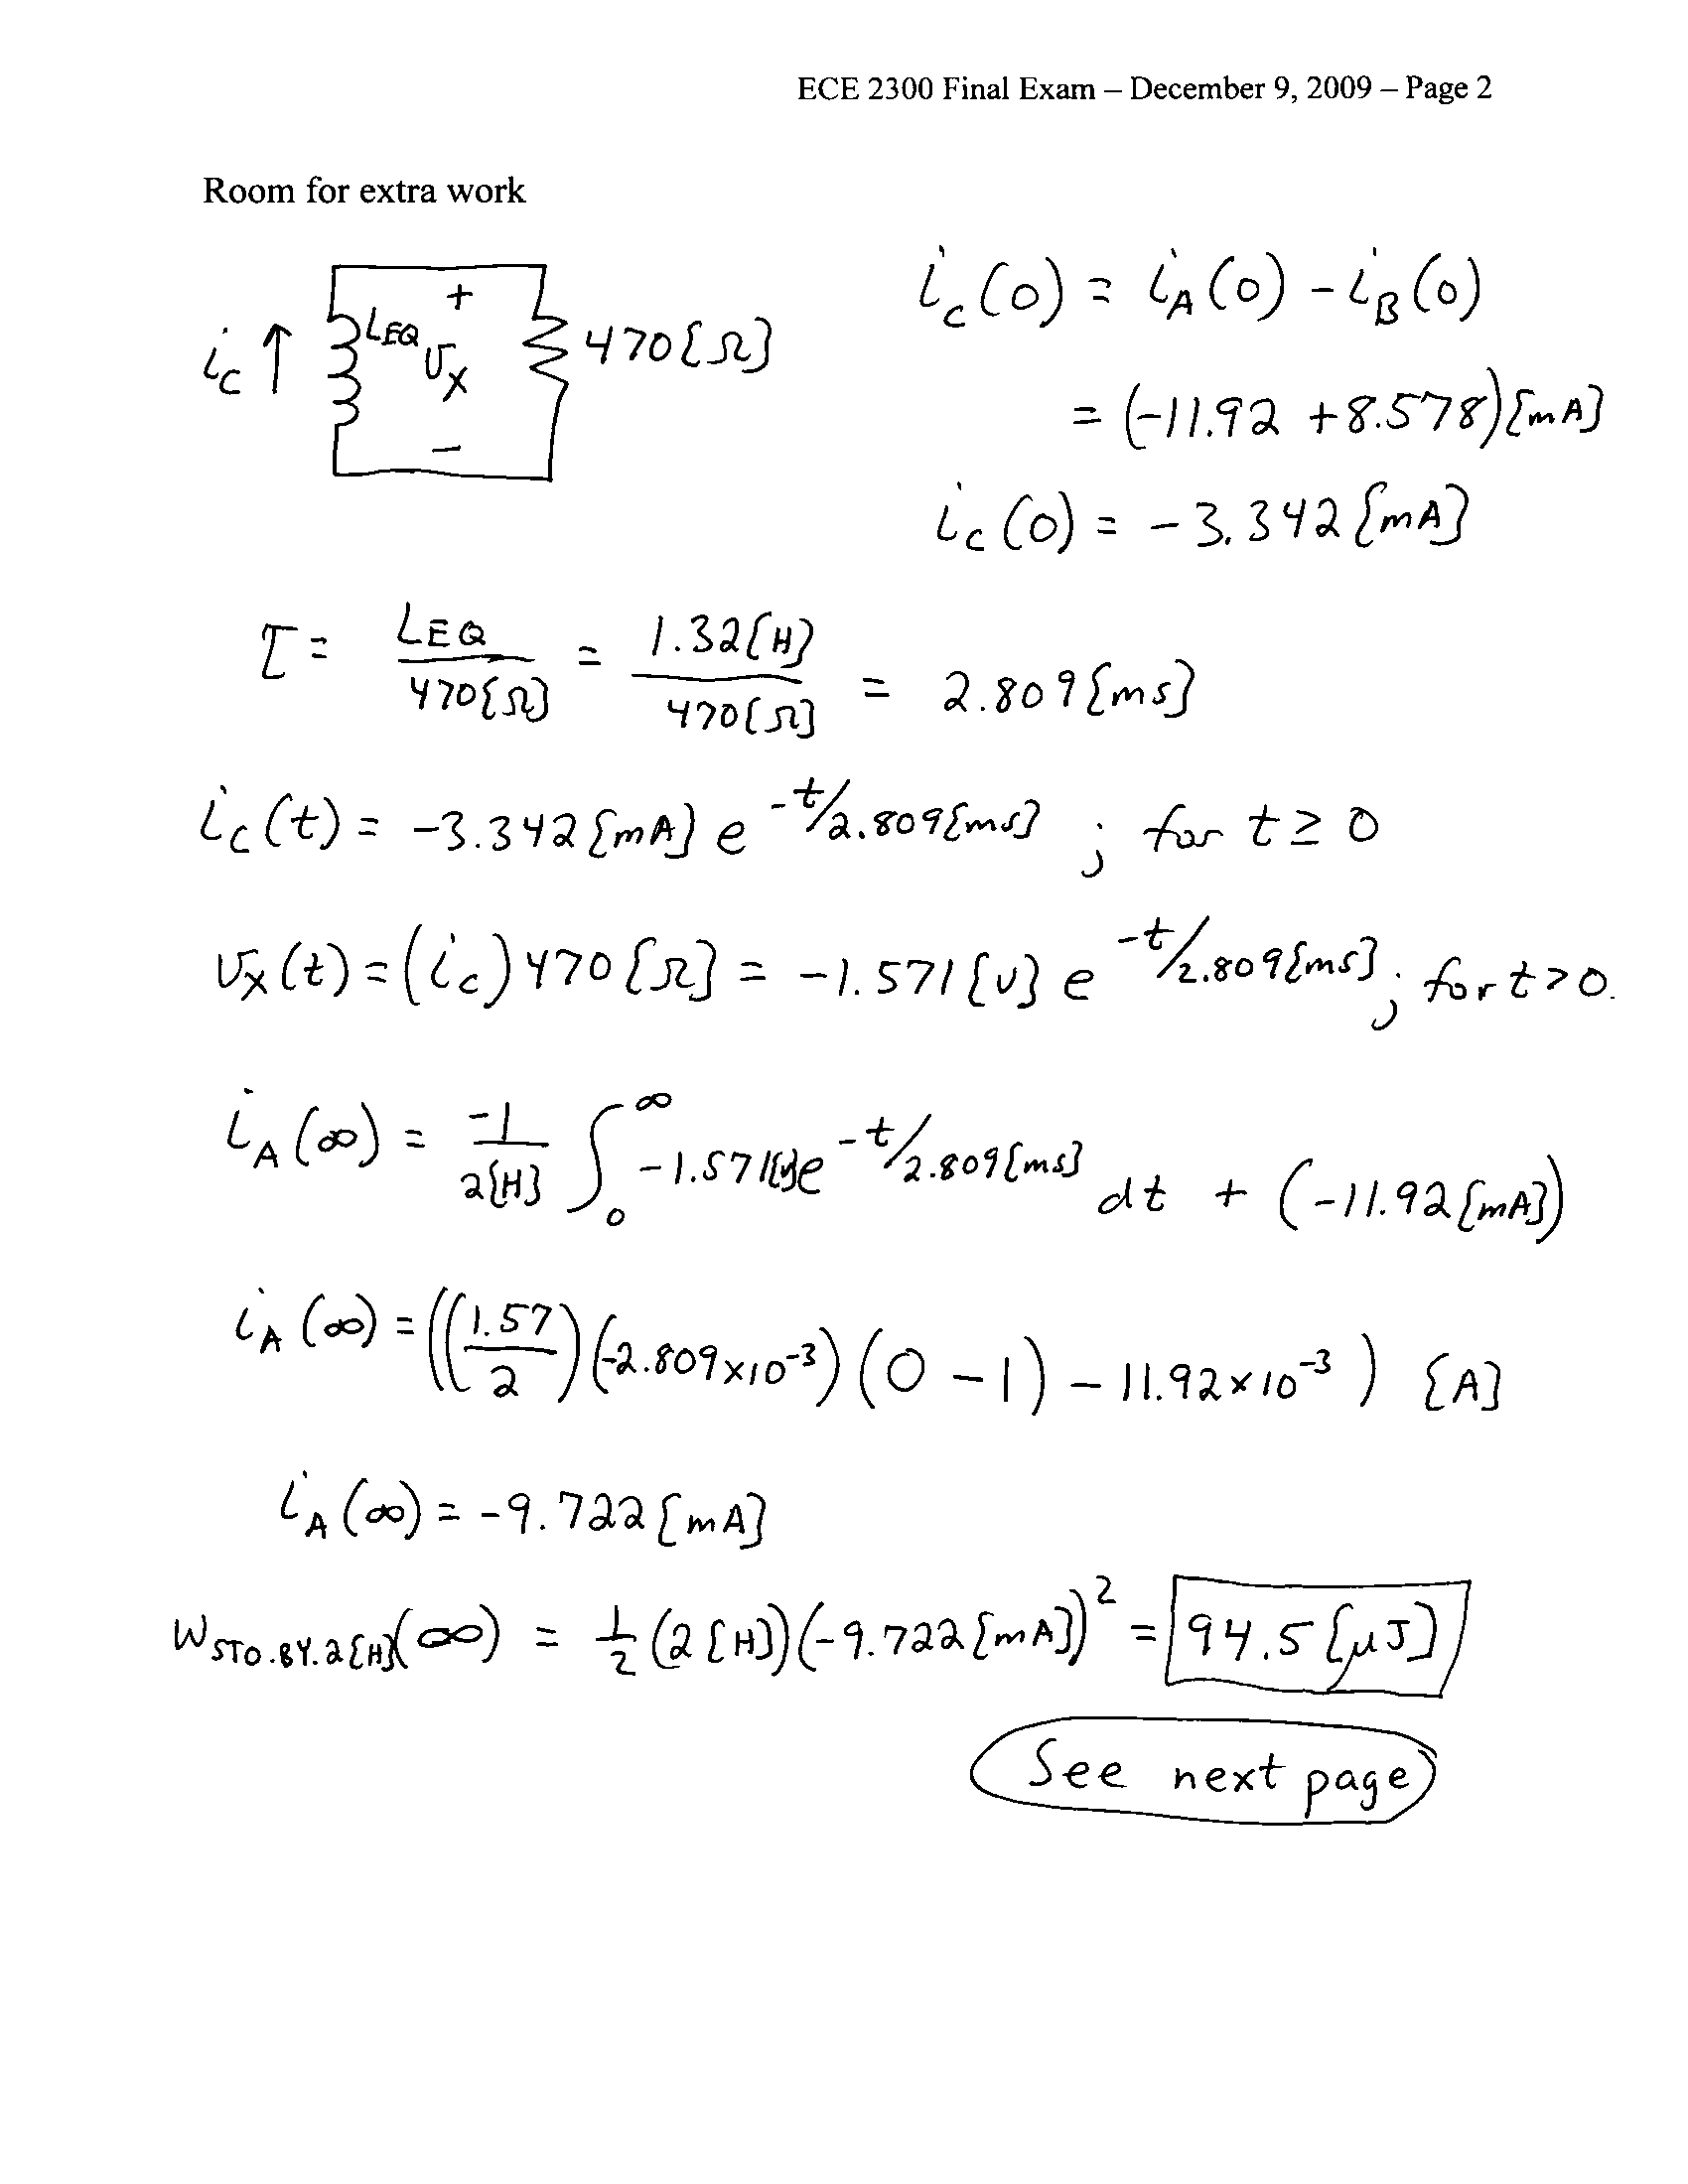 ECE 2300 Final Exam – December 9, 2009 – Page 2
Room for extra work
i_C ↑ L_EQ + v_X − 470[Ω]
i_C(0) = i_A(0) - i_B(0)
= (-11.92 + 8.578)[mA]
i_C(0) = -3.342[mA]
τ = L_EQ / 470[Ω] = 1.32[H] / 470[Ω] = 2.809[ms]
i_C(t) = -3.342[mA] e^{-t/2.809[ms]} ; for t ≥ 0
v_X(t) = (i_C) 470[Ω] = -1.571[V] e^{-t/2.809[ms]} ; for t > 0.
i_A(∞) = -1 / 2[H] ∫_0^∞ -1.571[V] e^{-t/2.809[ms]} dt + (-11.92[mA])
i_A(∞) = ((1.57 / 2)(-2.809×10^{-3})(0 - 1) - 11.92×10^{-3}) [A]
i_A(∞) = -9.722[mA]
W_STO.BY.2[H](∞) = 1/2 (2[H])(-9.722[mA])^2 = 94.5[μJ]
See next page